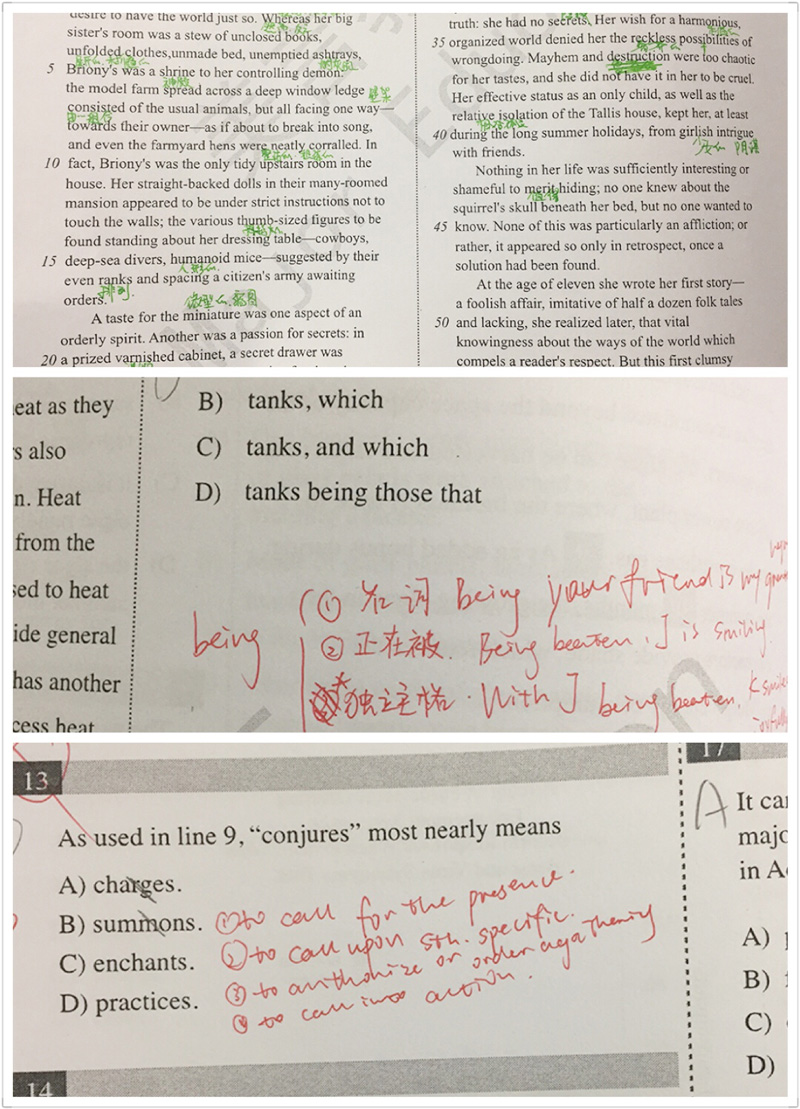 desire to have the world just so. Whereas her big
sister's room was a stew of unclosed books,
unfolded clothes,unmade bed, unemptied ashtrays,
5 Briony's was a shrine to her controlling demon:
the model farm spread across a deep window ledge
consisted of the usual animals, but all facing one way—
towards their owner—as if about to break into song,
and even the farmyard hens were neatly corralled. In
10 fact, Briony's was the only tidy upstairs room in the
house. Her straight-backed dolls in their many-roomed
mansion appeared to be under strict instructions not to
touch the walls; the various thumb-sized figures to be
found standing about her dressing table—cowboys,
15 deep-sea divers, humanoid mice—suggested by their
even ranks and spacing a citizen's army awaiting
排列
orders.
A taste for the miniature was one aspect of an
orderly spirit. Another was a passion for secrets: in
20 a prized varnished cabinet, a secret drawer was
truth: she had no secrets. Her wish for a harmonious,
35 organized world denied her the reckless possibilities of
wrongdoing. Mayhem and destruction were too chaotic
for her tastes, and she did not have it in her to be cruel.
Her effective status as an only child, as well as the
relative isolation of the Tallis house, kept her, at least
40 during the long summer holidays, from girlish intrigue
with friends.
阴谋
Nothing in her life was sufficiently interesting or
shameful to merit hiding; no one knew about the
值得
squirrel's skull beneath her bed, but no one wanted to
45 know. None of this was particularly an affliction; or
rather, it appeared so only in retrospect, once a
solution had been found.
At the age of eleven she wrote her first story—
a foolish affair, imitative of half a dozen folk tales
50 and lacking, she realized later, that vital
knowingness about the ways of the world which
compels a reader's respect. But this first clumsy
eat as they
s also
n. Heat
from the
sed to heat
ide general
has another
cess heat
B) tanks, which
C) tanks, and which
D) tanks being those that
being
① 名词 Being your friend is my
② 正在被. Being beaten, J is smiling.
独立主格. With J being beaten, K smile
13
As used in line 9, “conjures” most nearly means
A) charges.
B) summons. ① to call for the presence.
C) enchants. ② to call upon sth. specific.
D) practices. ③ to authorize or order a gathering
④ to call into action.
14
17
A
It ca
majo
in A
A)
B)
C)
D)